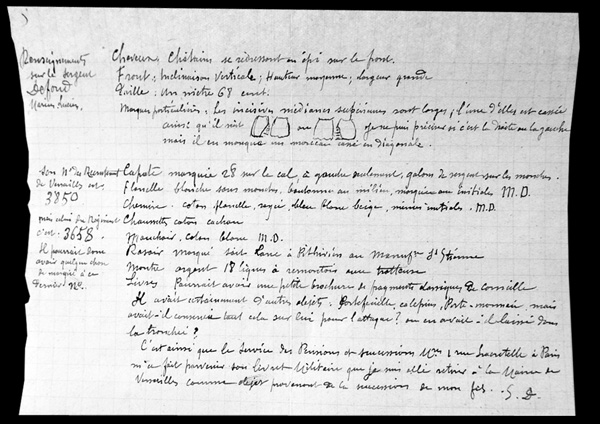 Renseignements
sur le sergent
Defond
Marius Lucien.
Cheveux, Châtains se redressant en épi sur le front.
Front : Inclinaison verticale ; Hauteur moyenne ; Largeur grande
Taille : Un mètre 68 cent.
Marques particulières : Les incisives médianes supérieures sont larges ; l'une d'elles est cassée
ainsi qu'il suit ou Je ne puis préciser si c'est la droite ou la gauche
mais il en manque un morceau cassé en diagonale.
Son No de Recrutement
de Versailles est
3850
puis celui du Régiment
c'est 3658.
Il pourrait donc
avoir quelque chose
de marqué à ce
dernier No.
Capote marquée 28 sur le col, à gauche seulement, galons de sergent sur les manches.
Flanelle blanche sous manches, boutonne au milieu, marquée aux initiales M.D.
Chemise. coton flanelle, rayée, bleu blanc beige, mêmes initiales. M.D.
Chaussettes coton cachou
Mouchoir, coton blanc M.D.
Rasoir marqué soit à Pithiviers ou Manufre St Etienne
Montre argent 18 lignes à remontoir avec trotteuse
Livres Pourrait avoir une petite brochure de fragments classiques de Corneille
Il avait certainement d'autres objets : Portefeuille calepins, Porte-monnaie, mais
avait-il conservé tout cela sur lui pour l'attaque ? ou en avait-il laissé dans
la tranchée ?
C'est ainsi que le service des Pensions et successions 1 rue Lacretelle à Paris
m'a fait parvenir son livret Militaire que je suis allé retirer à la Mairie de
Versailles comme objet provenant de la succession de mon fils. . D.